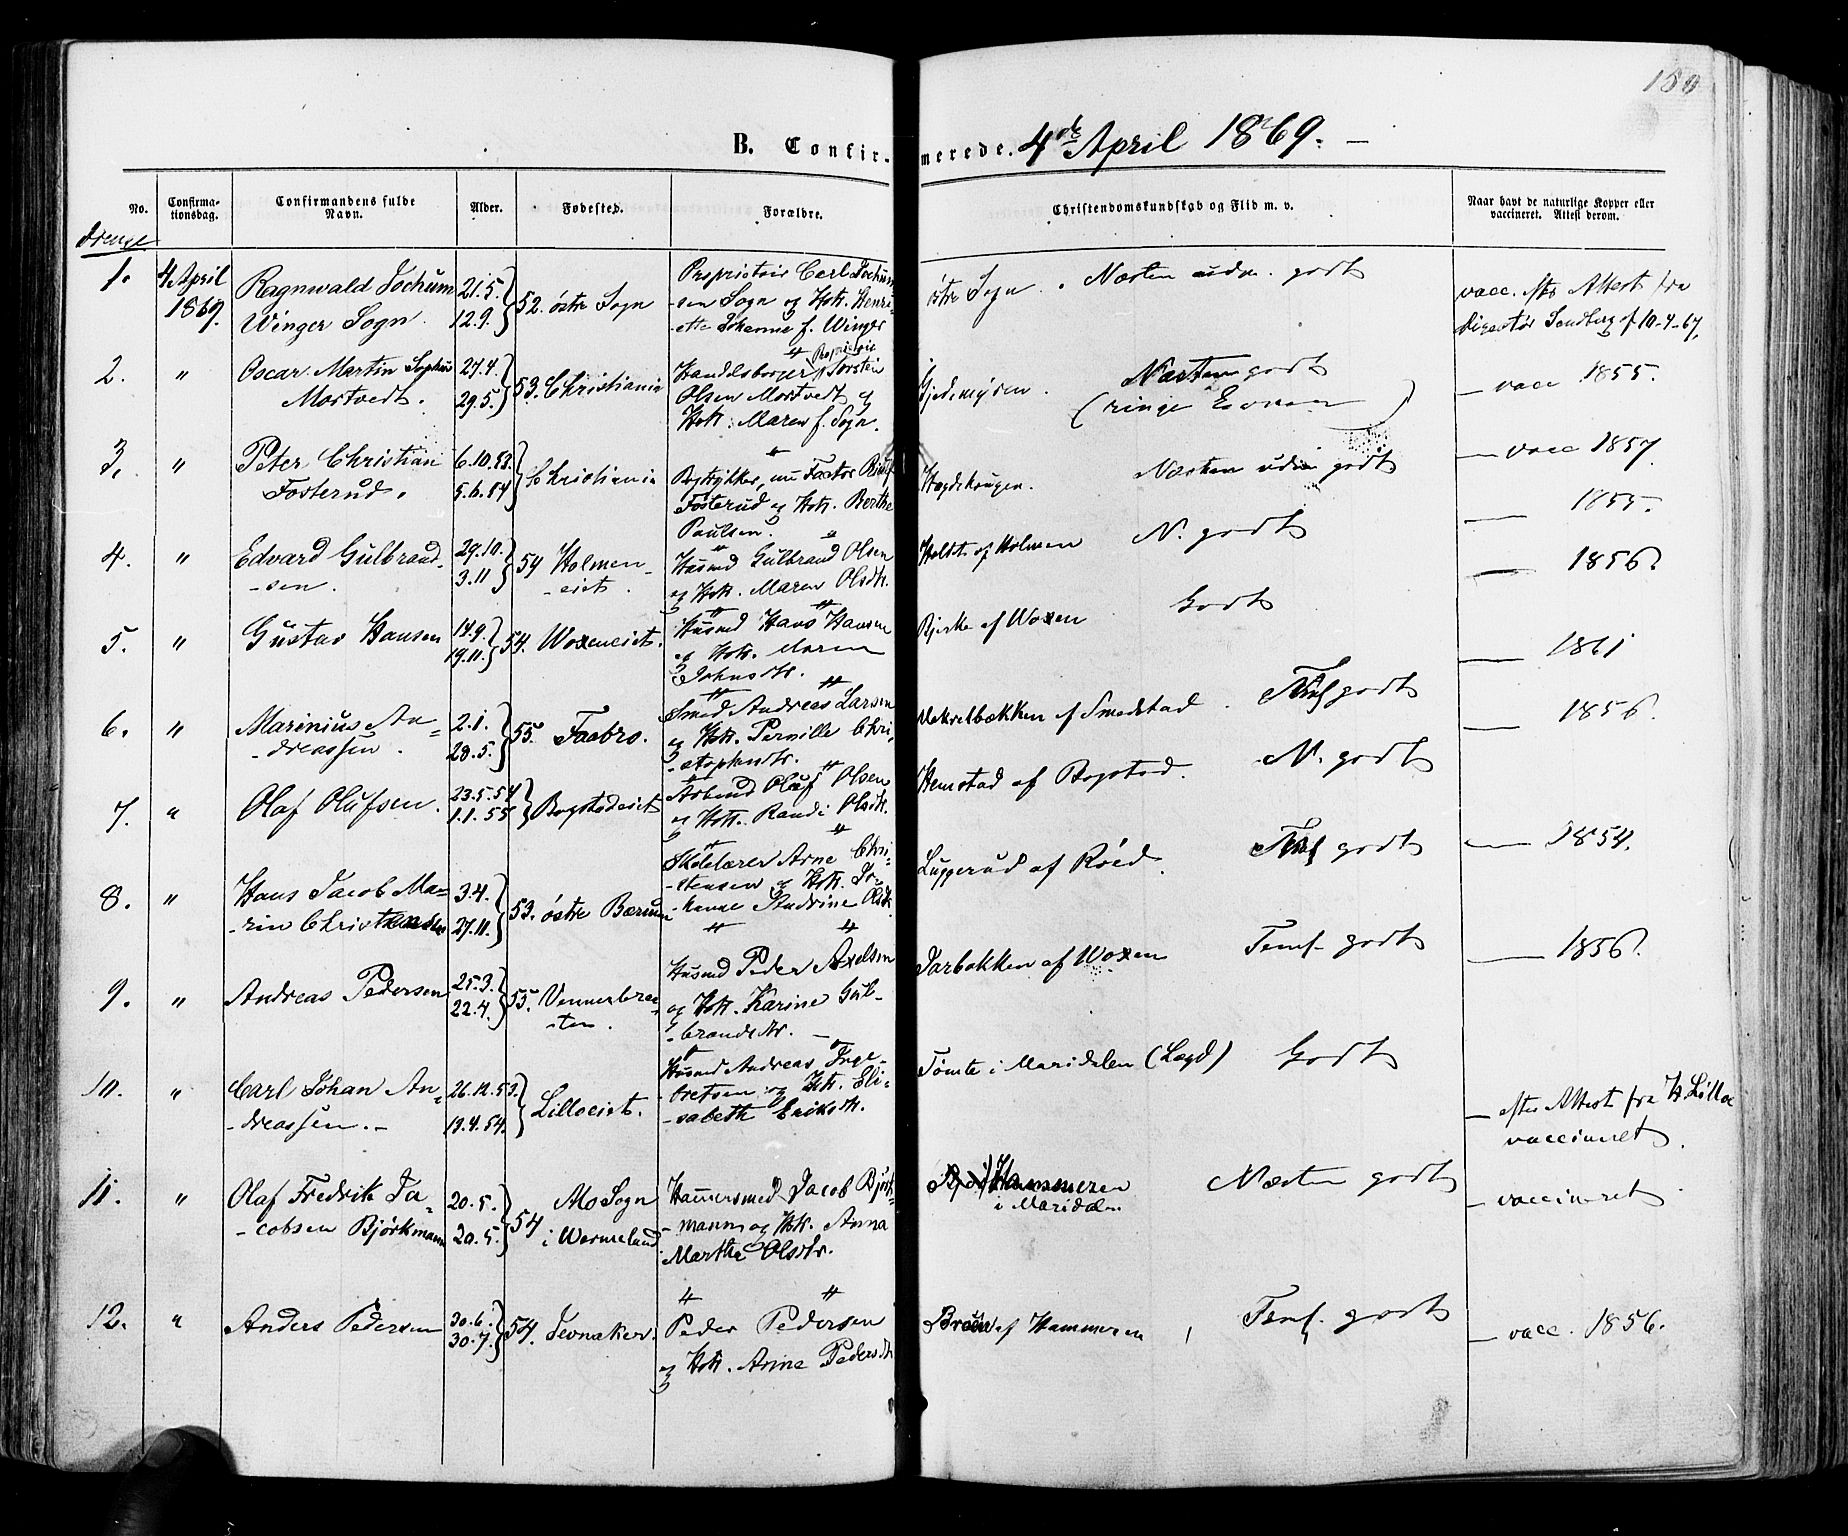 180
B. Confir- merede. 4de April 1869. –
No.
Confirma-
tionsdag.
Confirmandens fulde
Navn.
Alder.
Fødested.
Forældre.
Christendomskundskab og Flid m. v.
Naar havt de naturlige Kopper eller
vaccineret. Attest derom.
Drenge
1. 4 April
1869.
Ragnwald Jochum
Winger Sogn.
21.5.
12.9.
52. østre Sogn
Proprietair Carl Jochum-
-sen Sogn og Hst. Henri-
-ette Johanne f. Winger
østre Sogn. Næsten udm. godt
vacc. efter Attest fra
Director Sandberg af 10-4-67.
2. "
Oscar Martin Sophus
Mostvedt.
27.4.
29.5.
53. Christiania
Handelsborger, Proprietair Torsten
Olsen Mostvedt og
Hst. Maren f. Sogn.
Gjedemyren. Næsten godt
(ringe Evner)
– vacc 1855.
3. "
Peter Christian
Fosterud.
6.10.53.
5.6.54
Christiania
Fosterud og Hst. Berthe
Paulsen.
Hægdehaugen. Næsten udm godt
– vacc 1857
4. "
Edvard Gulbrand-
-sen.
29.10.
3.11
54 Holmen-
-eiet.
Husmd Gulbrand Olsen
og Hst. Maren Olsdtr.
Holdt. af Holmen N. godt
— 1855.
5. "
Gustav Hansen
14.9.
19.11.
54. Woxeneiet.
Husmd Hans Hansen
og Hst. Maren
Johnsdtr.
Bjerke af Woxen Godt
— 1856.
6. "
Marinius An-
-dreassen.
2.1.
28.5.
55. Faabro.
Smed Andreas Larsen
og Hst. Pernille Chri-
-stophersdtr.
Makrelbækken af Smedstad. Teml godt
— 1861
7. "
Olaf Olufsen.
23.5.54
1.1.55
Bogstadeiet
Arbmd Oluf Olsen
og Hst. Randi Olsdtr.
Hemstad af Bogstad. N. godt
— 1856.
8. "
Hans Jacob Ma-
-rin Christensen
3.4.
27.11.
53. østre Bærum
Skolelærer Arne Chri-
-stensen og Hst. Jo-
-hanne Andrine Olsdtr.
Luggerud af Røed. Teml godt
— 1854.
9. "
Andreas Pedersen
25.3.
22.4.
55. Vennerbræ-
-ten.
Husmd Peder Axelsen
og Hst. Karine Gul-
-brandsdtr. –
Tarbakken af Woxen Teml. godt
— 1856.
10. "
Carl Johan An-
-dreassen. –
26.12.53.
19.4.54.
Lilloeiet.
Husmd Andreas Inge-
-bretsen og Hst. Eli-
-sabeth Eriksdtr.
Tømte i Maridalen (Lægd) Godt
– efter Attest fra H. Lilloe
vaccineret.
11. "
Olaf Fredrik Ja-
-cobsen Bjørkmann
20.5.
20.5.
54 Mo Sogn
i Wermeland
Hammersmed Jacob Bjørk-
-mann og Hst. Anna
Martha Olsdtr.
Hammeren
i Maridalen
Næsten godt
– vaccineret
12. "
Anders Pedersen
30.6.
30.7.
54. Jevnaker.
" "
Peder Pedersen
og Hst. Anne Pedersdtr
Bruun af Hammeren Teml. godt
– vacc. 1856.